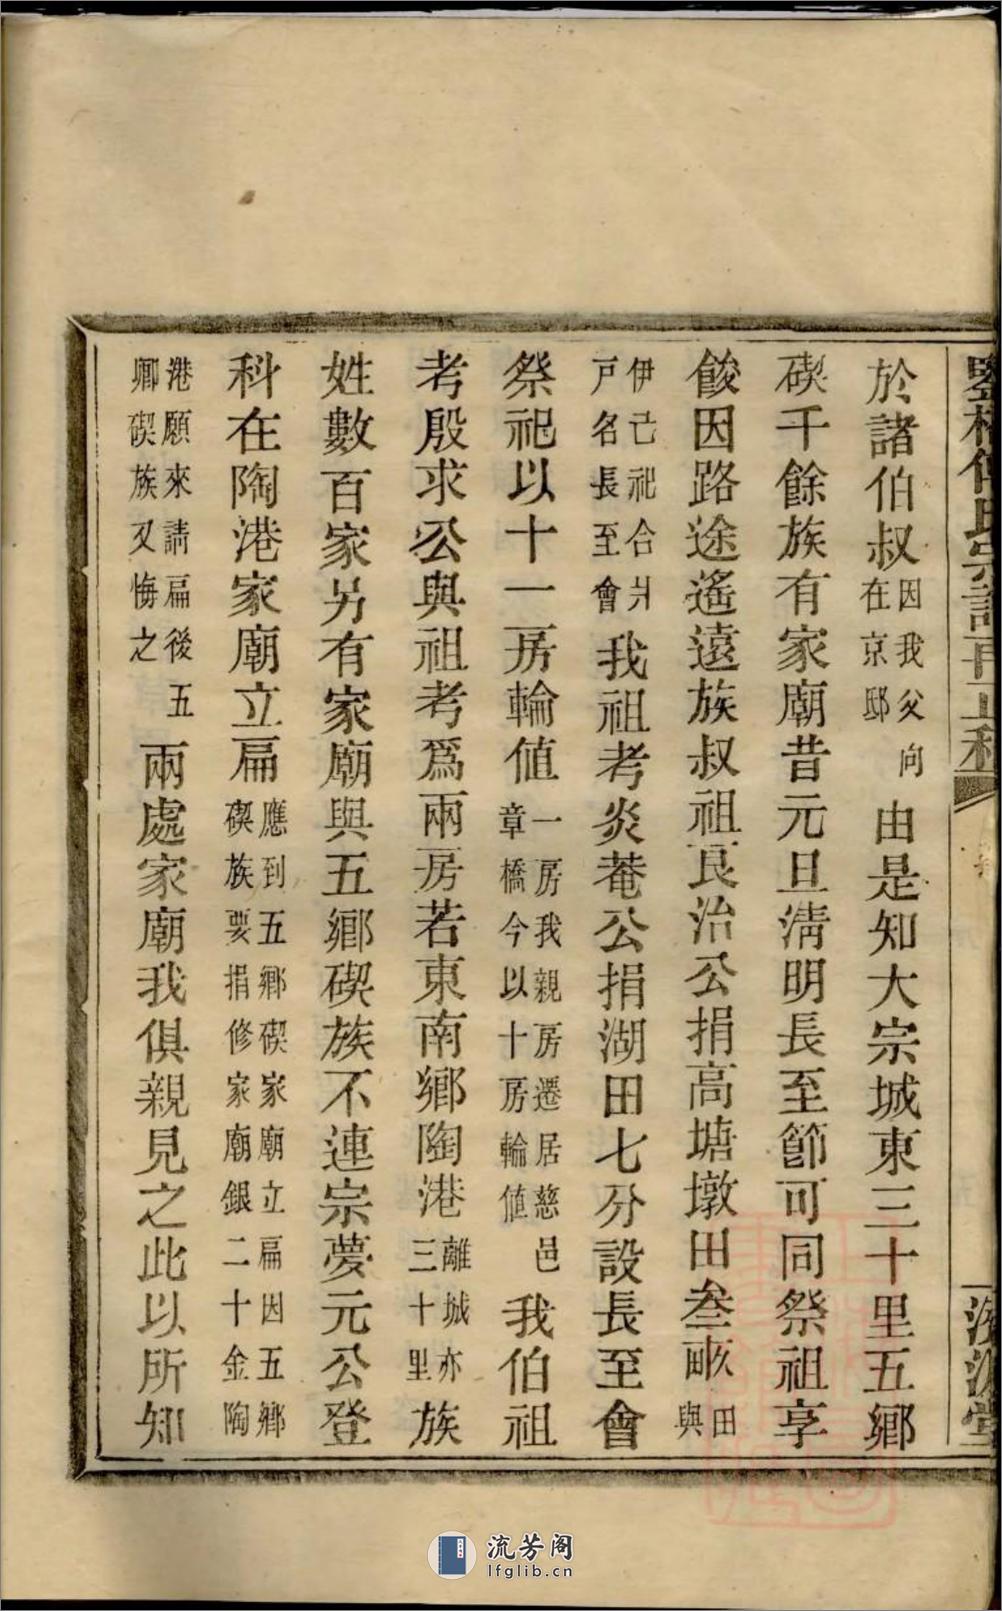 傅氏宗譜
於諸伯叔因我父向在京邸由是知大宗城東三十里五鄉
碶千餘族有家廟昔元旦淸明長至節可同祭祖享
餕因路途遙遠族叔祖艮治公捐高塘墩田叁畝田與
伊己祀合爿戸名長至會我祖考炎菴公捐湖田七分設長至會
祭祀以十一房輪値一房我親房遷居慈邑章橋今以十房輪値我伯祖
考殷求公與祖考爲兩房若東南鄉陶港離城亦三十里族
姓數百家另有家廟與五鄉碶族不連宗夢元公登
科在陶港家廟立扁應到五鄉碶家廟立扁因五鄉碶族要捐修家廟銀二十金陶
港願來請扁後五鄉碶族又悔之兩處家廟我俱親見之此以所知
流芳阁
lfglib.cn